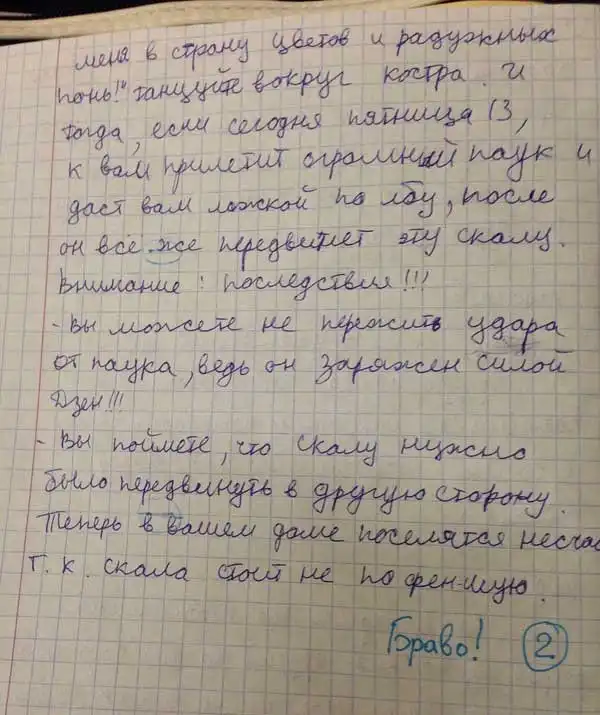 меня в страну цветов и радужных
понь!" танцуйте вокруг костра. И
тогда, если сегодня пятница 13,
к вам прилетит огромный паук и
даст вам ложкой по лбу, после
он всё же передвинет эту скалу.
Внимание: последствия!!!
- Вы можете не пережить удара
от паука, ведь он заряжен силой
Дзен!!!
- Вы поймете, что скалу нужно
было передвинуть в другую сторону.
Теперь в вашем доме поселятся несчас
т.к. скала стоит не по фен-шую.
Браво! 2